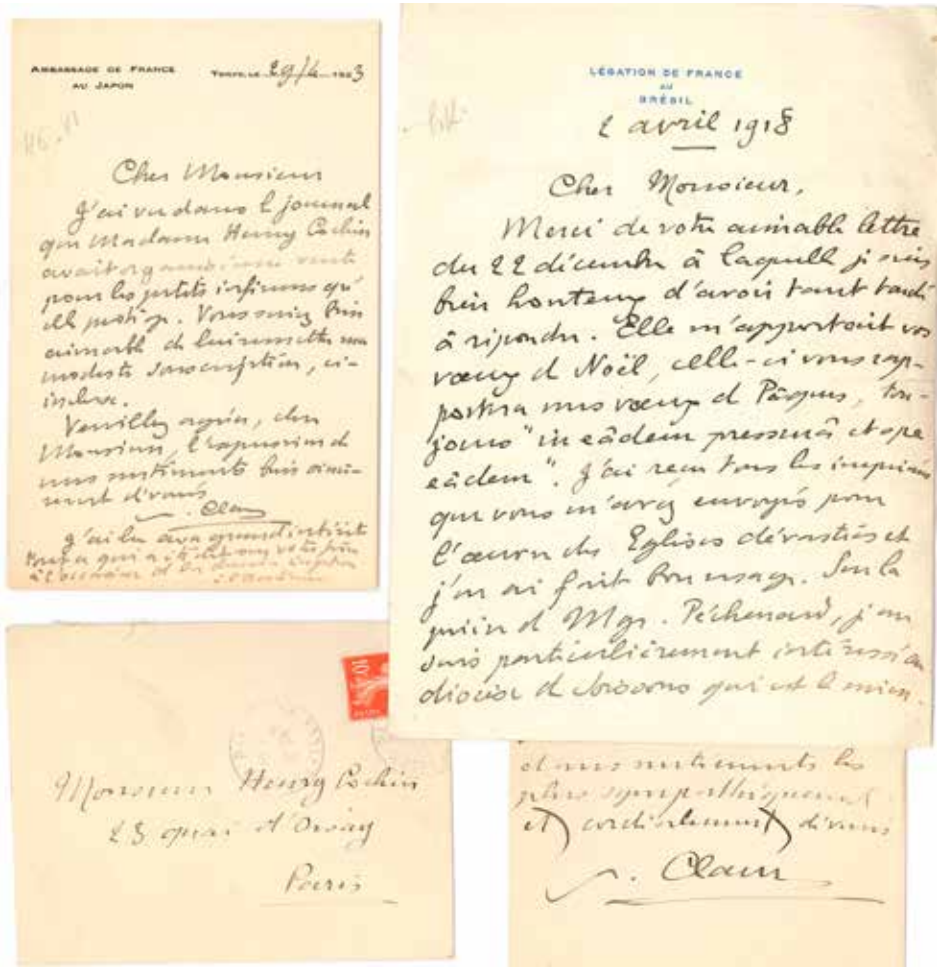 AMBASSADE DE FRANCE
AU JAPON
TOKYO, LE 29/4 1923
Cher Monsieur
J'ai vu dans le journal
que Madame Henry Cochin
avait organisé une vente
pour les petits infirmes qu'
elle protège. Vous seriez bien
aimable de lui remettre ma
modeste souscription, ci-
incluse.
Veuillez agréer, cher
Monsieur, l'expression de
mes sentiments bien sincè-
rement dévoués
Claudel
J'ai lu avec grand intérêt
tout ce qui a été dit sur votre
à l'occasion de
LÉGATION DE FRANCE
AU
BRÉSIL
2 avril 1918
Cher Monsieur,
Merci de votre aimable lettre
du 22 décembre à laquelle je suis
bien honteux d'avoir tant tardé
à répondre. Elle m'apportait vos
vœux de Noël, celle-ci vous rap-
portera mes vœux de Pâques, tou-
jours "in eâdem pressurâ et spe
eâdem". J'ai reçu tous les imprimés
que vous m'avez envoyés pour
l'œuvre des Eglises dévastées et
j'en ai fait bon usage. Sur la
prière de Mgr. Péchenard, je me
suis particulièrement intéressé au
diocèse de Soissons qui est le mien.
Monsieur Henry Cochin
25 quai d'Orsay
Paris
10
et mes sentiments les
plus sympathiquement
et cordialement dévoués
Claudel